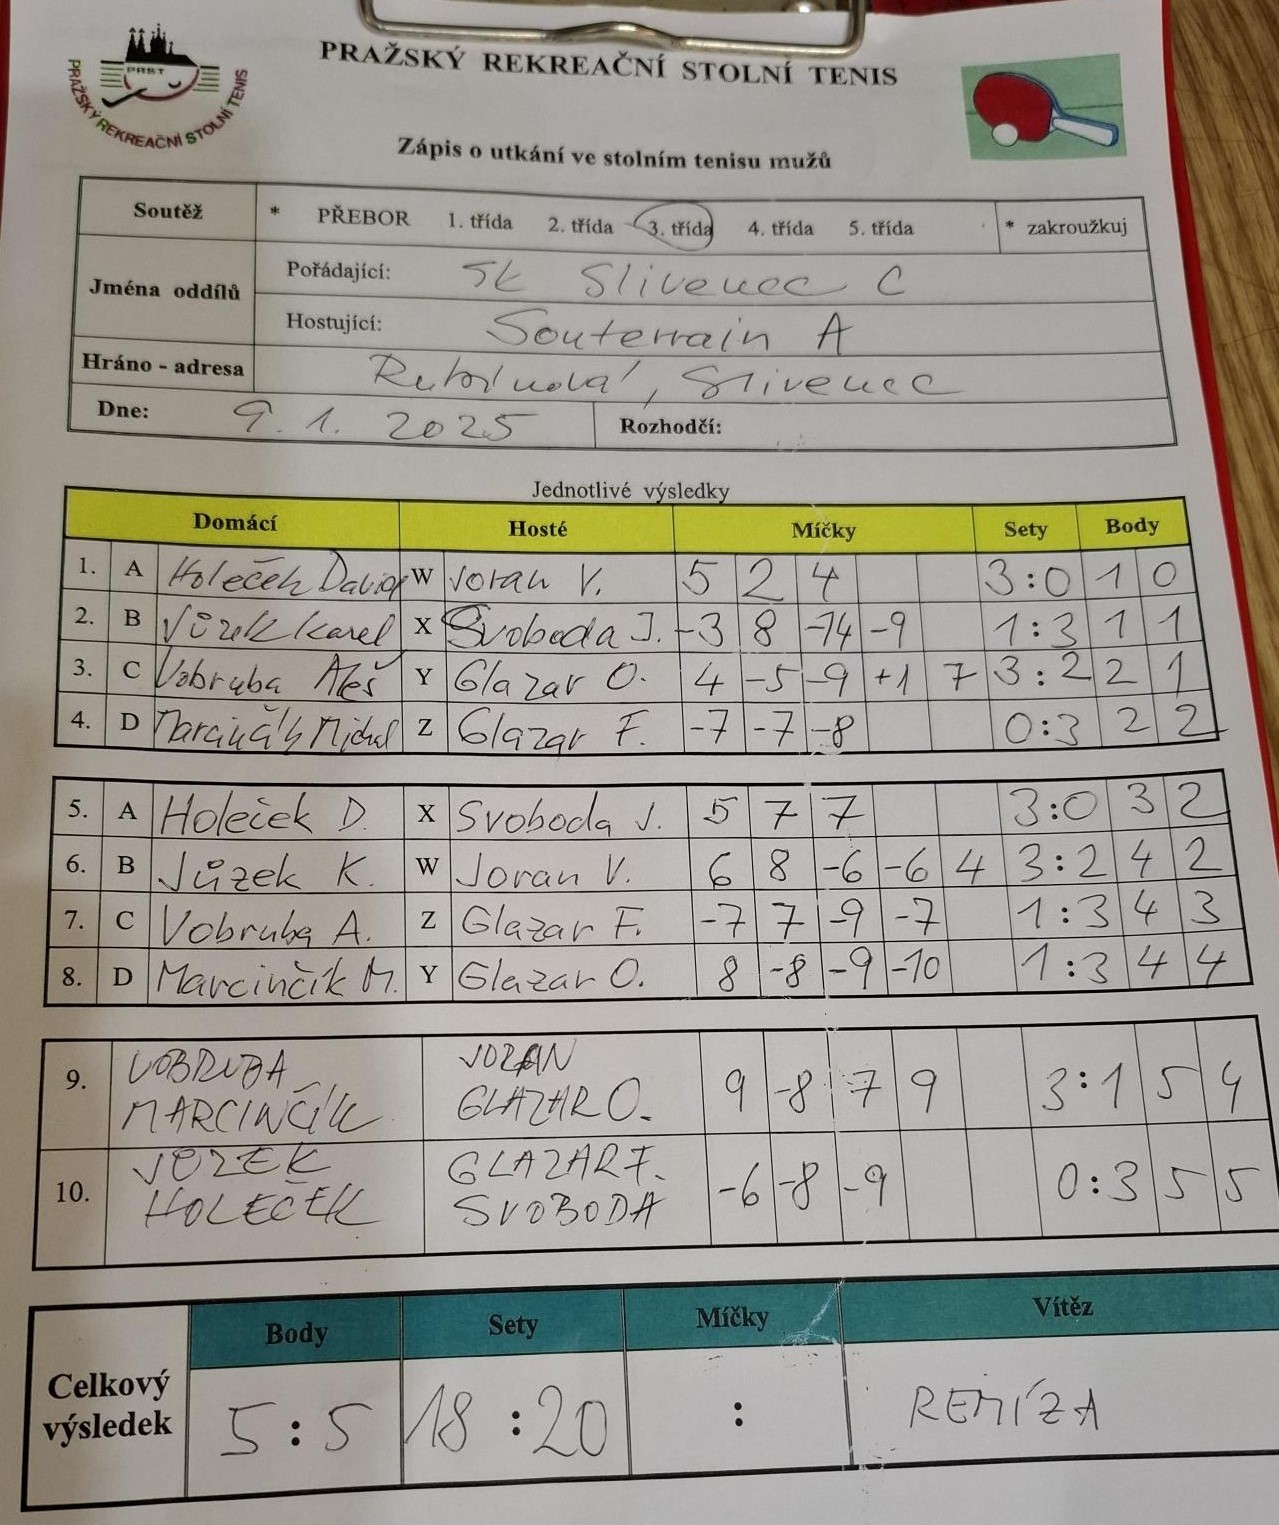 PRAŽSKÝ REKREAČNÍ STOLNÍ TENIS
PRST
PRAŽSKÝ REKREAČNÍ STOLNÍ TENIS
Zápis o utkání ve stolním tenisu mužů
Soutěž * PŘEBOR 1. třída 2. třída 3. třída 4. třída 5. třída * zakroužkuj
Jména oddílů
Pořádající: SK Slivenec C
Hostující: Souterrain A
Hráno - adresa Rubínová, Slivenec
Dne: 9. 1. 2025 Rozhodčí:
Jednotlivé výsledky
Domácí Hosté Míčky Sety Body
1. A Holeček David W Joran V. 5 2 4 3:0 1 0
2. B Jůzek Karel X Svoboda J. -3 8 -14 -9 1:3 1 1
3. C Vobruba Aleš Y Glazar O. 4 -5 -9 +1 7 3:2 2 1
4. D Marcinčík Michal Z Glazar F. -7 -7 -8 0:3 2 2
5. A Holeček D. X Svoboda J. 5 7 7 3:0 3 2
6. B Jůzek K. W Joran V. 6 8 -6 -6 4 3:2 4 2
7. C Vobruba A. Z Glazar F. -7 7 -9 -7 1:3 4 3
8. D Marcinčík M. Y Glazar O. 8 -8 -9 -10 1:3 4 4
9. VOBRUBA JORAN
MARCINČÍK GLAZAR O. 9 -8 7 9 3:1 5 4
10. JŮZEK GLAZAR F.
HOLEČEK SVOBODA -6 -8 -9 0:3 5 5
Body Sety Míčky Vítěz
Celkový
výsledek 5:5 18:20 : REMÍZA